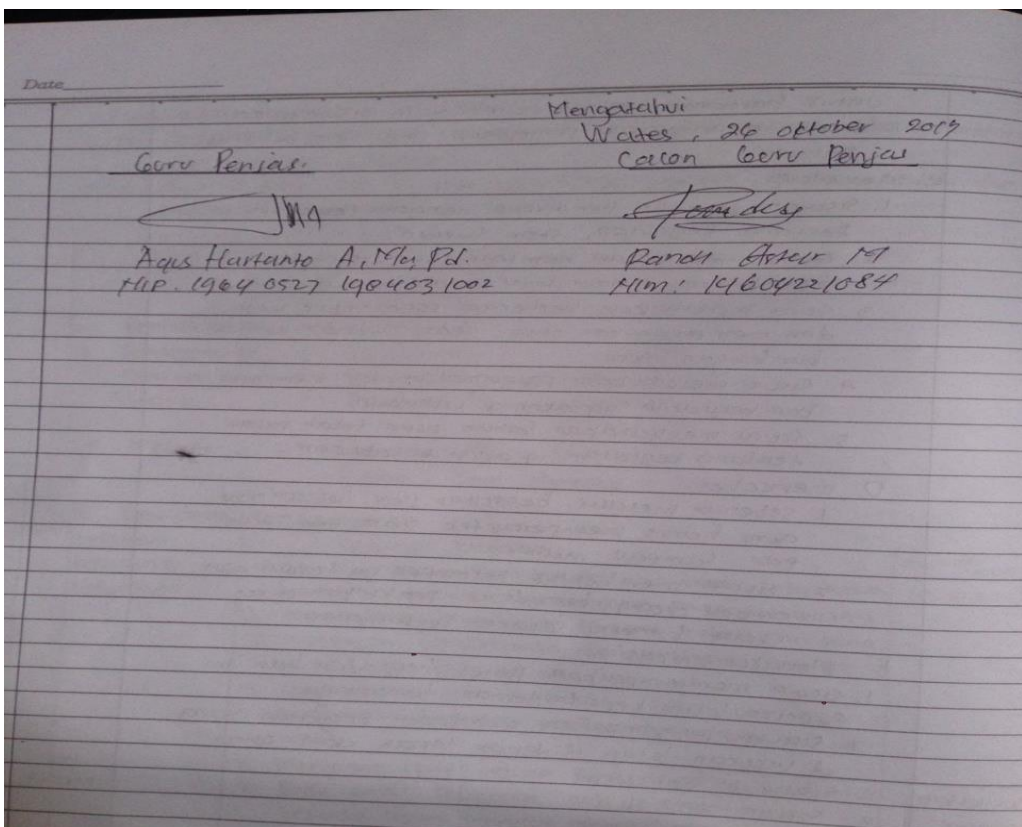 Date
Mengatahui
Wates, 26 oktober 2017
Guru Penjas. Calon Guru Penjas
Agus Hartanto A, Ma, Pd. Astur M
NIP. 1964 0527 198403 1002 NIM: 14604221084